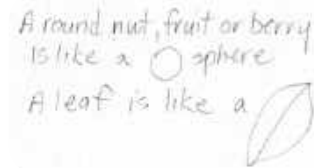 A round nut, fruit or berry
Is like a sphere
A leaf is like a